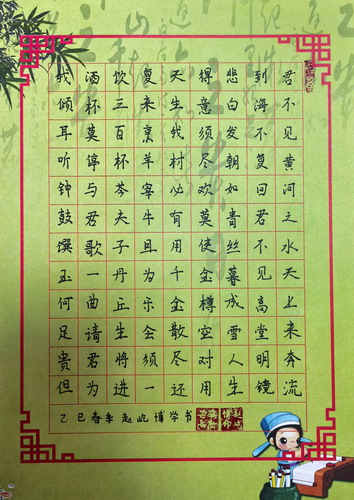 君不见黄河之水天上来奔流
到海不复回君不见高堂明镜
悲白发朝如青丝暮成雪人生
得意须尽欢莫使金樽空对月
天生我材必有用千金散尽还
复来烹羊宰牛且为乐会须一
饮三百杯岑夫子丹丘生将进
酒杯莫停与君歌一曲请君为
我倾耳听钟鼓馔玉何足贵但
乙巳春季赵屹博学书